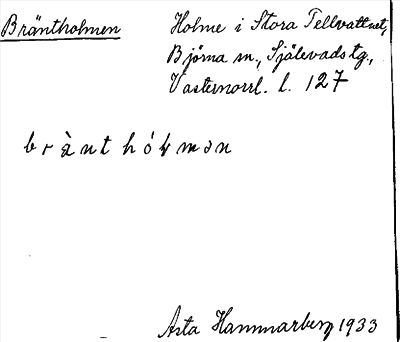 Bräntholmen
Holme i Stora Tellvattnet,
Björna sn., Själevads tg.,
Västernorrl. l. 127
brànthóḷmən
Asta Hammarberg 1933